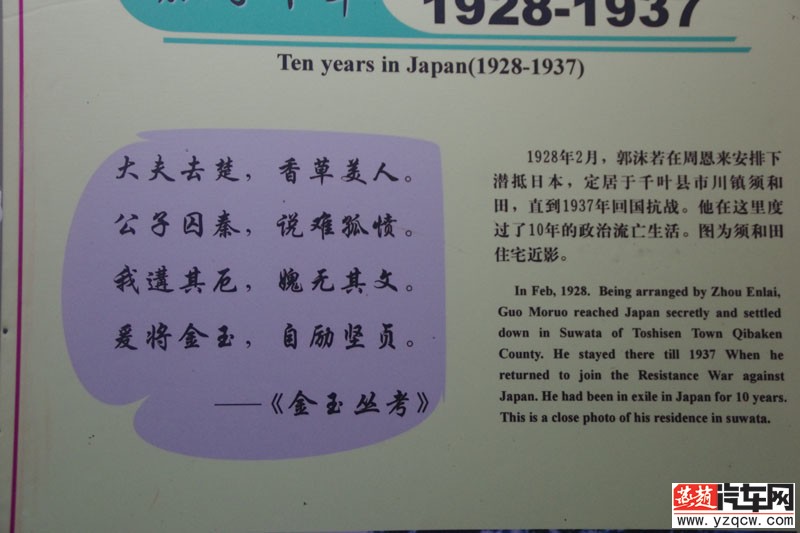 1928-1937
Ten years in Japan(1928-1937)
大夫去楚，香草美人。
公子囚秦，说难孤愤。
我遘其厄，媿无其文。
爰将金玉，自励坚贞。
——《金玉丛考》
1928年2月，郭沫若在周恩来安排下
潜抵日本，定居于千叶县市川镇须和
田，直到1937年回国抗战。他在这里度
过了10年的政治流亡生活。图为须和田
住宅近影。
In Feb, 1928. Being arranged by Zhou Enlai,
Guo Moruo reached Japan secretly and settled
down in Suwata of Toshisen Town Qibaken
County. He stayed there till 1937 When he
returned to join the Resistance War against
Japan. He had been in exile in Japan for 10 years.
This is a close photo of his residence in suwata.
燕赵汽车网
www.yzqcw.com